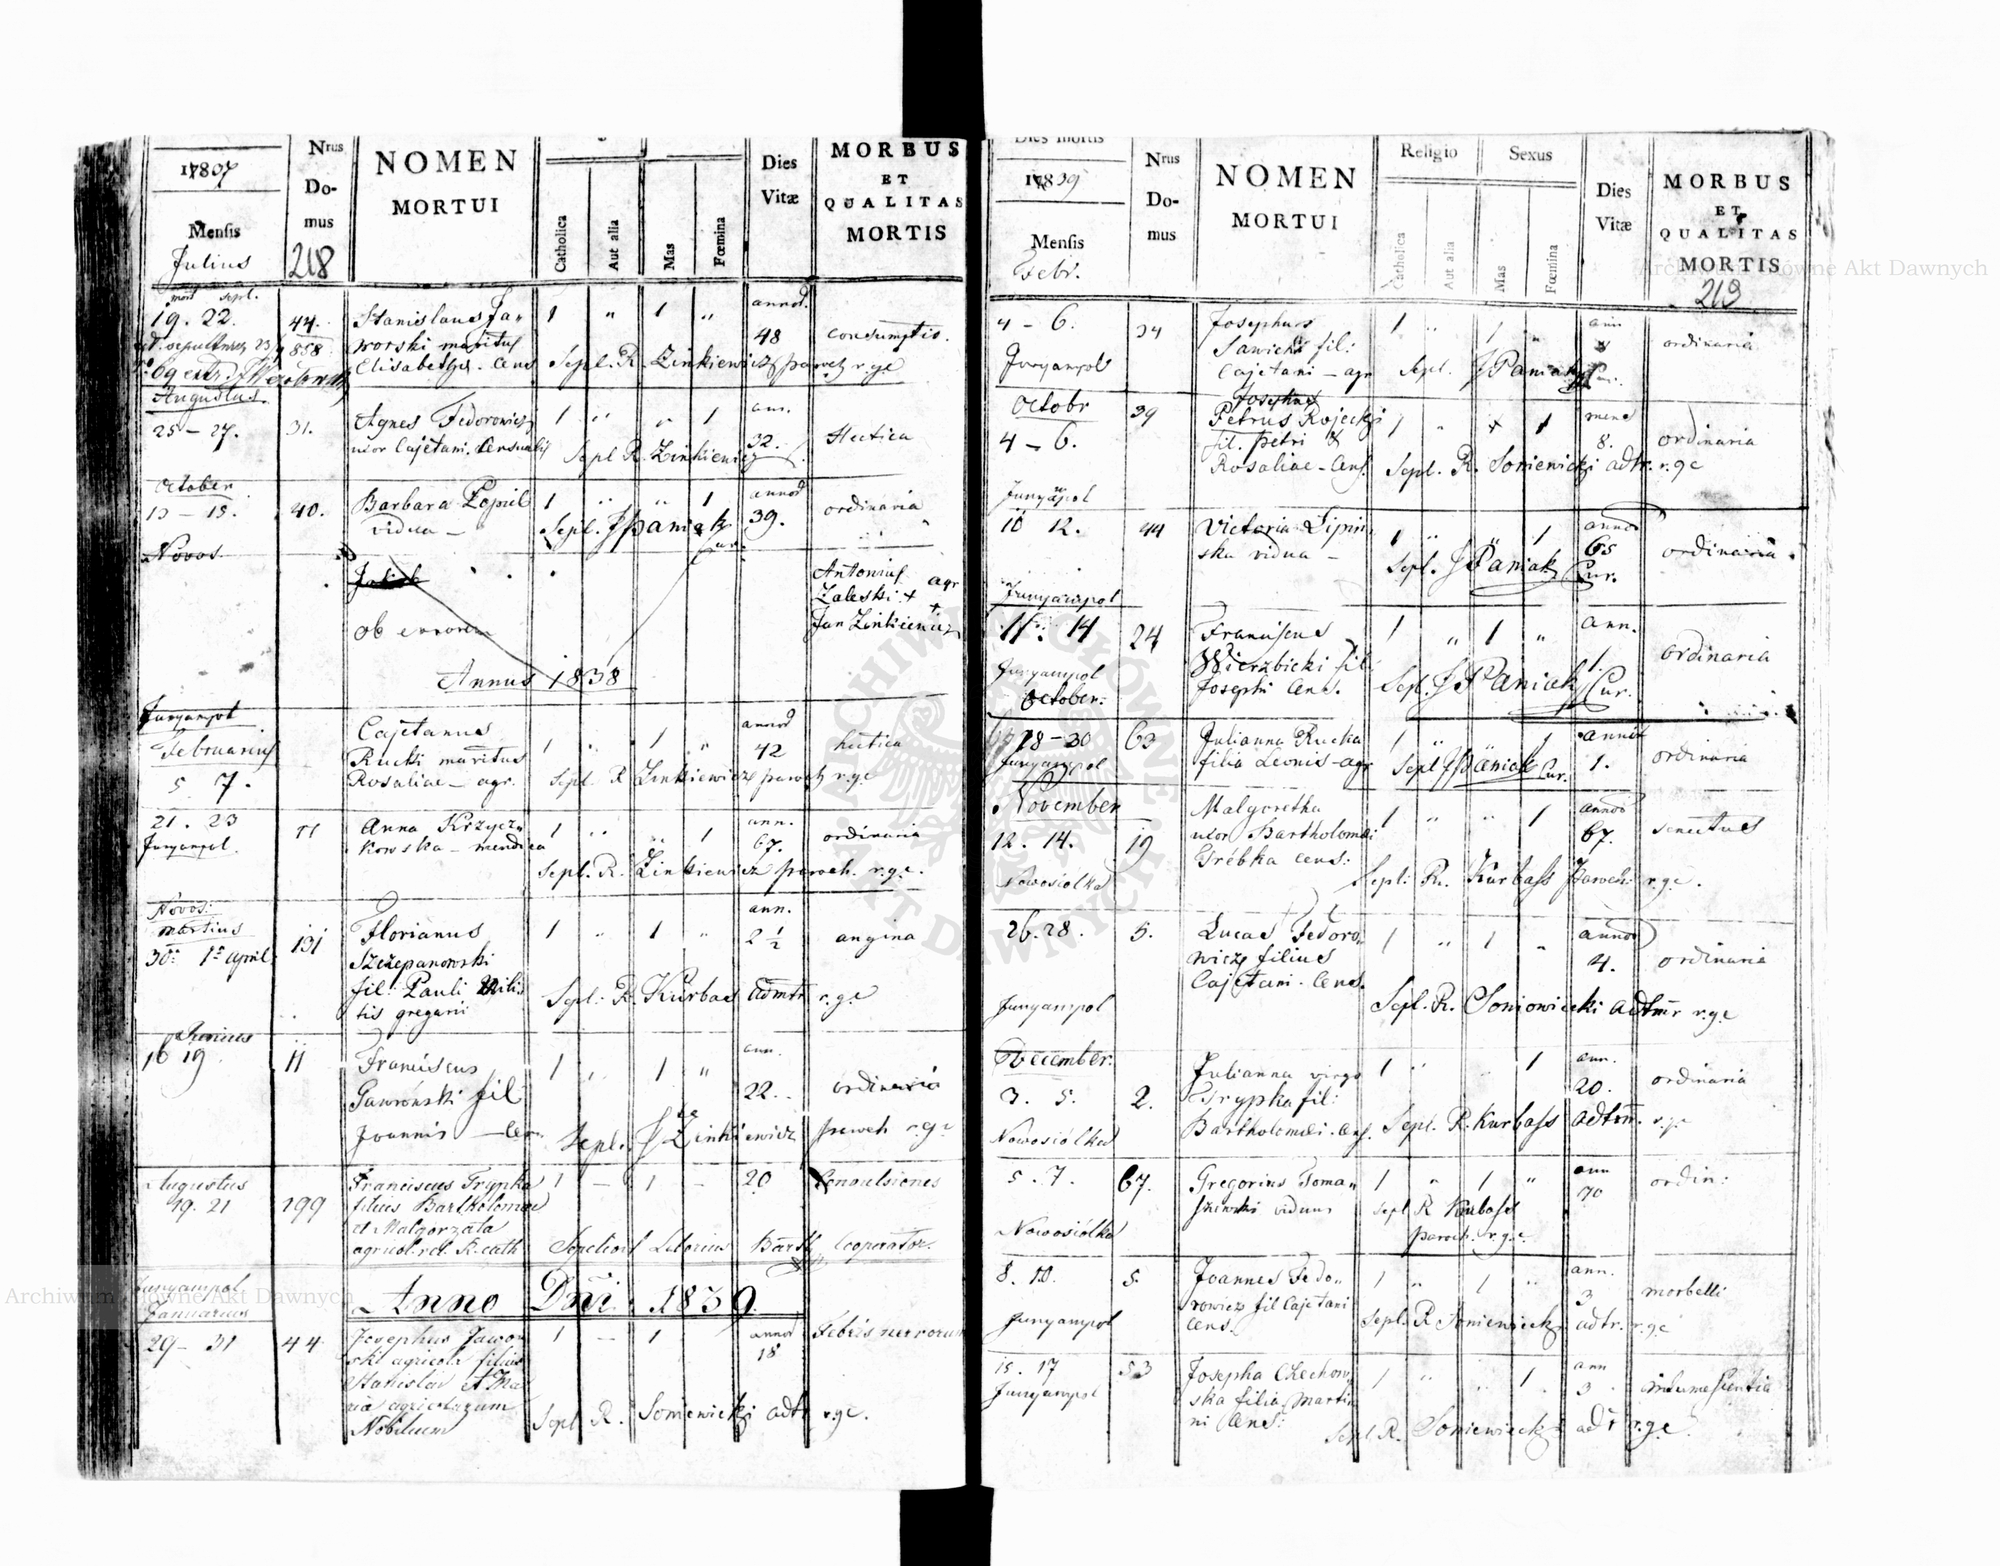 17807
Nrus
Do-
mus
NOMEN
MORTUI
Catholica
Aut alia
Mas
Fœmina
Dies
Vitæ
MORBUS
ET
QUALITAS
MORTIS
Mensis
Julius
218
mort sepl.
19. 22.
44.
858
Stanislaus Ja„
worski maritus
Elisabethae. Cens
1 „ 1 „
annor.
48
consumptio.
Sepl. R. Zinkiewicz paroch r.g.c
Augustus.
25 – 27.
31.
Agnes Fedorowicz
uxor Cajetani. Censualis
1 „ „ 1
ann.
32.
Hectica
Sepl. R. Zinkiewicz
October
13 – 15.
40.
Barbara Popiel
vidua –
1 „ „ 1
annor
39.
ordinaria
Sepl. J Paniak
Cur.
Novos.
ob errorem
Antonius agr
Zaleski +
Jan Zinkiewicz
Annus 1838
Junyampol
Februarius
5 7.
Cajetanus
Rucki maritus
Rosaliae – agr.
1 „ 1 „
annor
42
hectica
Sepl. R Zinkiewicz paroch r.g.c
21. 23
Junyampol.
11
Anna Krzycz„
kowska – mendica
1 „ „ 1
ann.
67.
ordinaria
Sepl. R. Zinkiewicz paroch. r.g.c.
Novos:
Martius
30 1 April
131
Florianus
Szczepanowski
fil: Pauli Mili„
tis gregarii
1 „ 1 „
ann.
2 ½
angina
Sepl: R. Kurbas admtr r.g.c
Junius
16 19
11
Franciscus
Gawroński fil
Joannis – Cen.
1 „ 1 „
ann.
22.
ordinaria
Sepl. J Zinkiewicz paroch r.g.c
Augustus
19. 21
199
Franciscus Trypka
filius Bartholomaei
et Malgorzata
agricol. rel. R. cath.
1 – 1 –
20
Convulsiones
Cooperator.
Junyampol
Januarius
Anno Dni 1839
29 – 31
44
Josephus Jawor
ski agricola filius
Stanislai et Ma
ria agricolarum
Nobilium
1 – 1
annor
18
Febris nervorum
Sepl R. Soniewicki adtr r.g.c.
Dies mortis
1839
Nrus
Do-
mus
NOMEN
MORTUI
Religio
Sexus
Catholica
Aut alia
Mas
Fœmina
Dies
Vitæ
MORBUS
ET
QUALITAS
MORTIS
Mensis
Febr.
219
4 – 6.
34
Josephus
Sawicki fil:
Cajetani – agr
1 „ 1 „
ann
ordinaria
Junyampol
Sepl. J Paniak
Cur.
Octobr
4 – 6.
39
Josephus
Petrus Rojecki
fil. Petri &
Rosaliae – Cens.
1 „ 1
mens
8.
ordinaria
Sepl. R. Soniewicki adtr. r.g.c
Junyampol
10 12.
44
Victoria Lipin„
ska vidua –
1 „ 1
annor
65
ordinaria.
Sepl. J Paniak Cur.
Junyampol
11. 14
24
Franciscus
Wierzbicki fil
Josephi Cens.
1 „ 1 „
ann.
1.
ordinaria
Sepl. J Paniak Cur.
Junyampol
October.
28 – 30
63
Julianna Rucka
filia Leonis – agr
1 „ 1
annor
1.
ordinaria
Junyampol
Sepl J Paniak Cur.
November
12. 14.
19
Malgoretha
uxor Bartholomaei
Grebka Cens:
1 „ „ 1
annor
67.
senectus
Nowosiólka
Sepl: R. Kurbass Paroch: r.g.c.
26. 28.
5.
Lucas Fedoro„
wicz filius
Cajetani. Cens.
1 „ 1 „
annor
4.
ordinaria
Junyampol
Sepl. R. Soniowicki adtmr r.g.c
December.
3. 5.
2.
Julianna virgo
Trypka fil:
Bartholomaei. Cens.
1 „ 1
ann.
20.
ordinaria
Nowosiólka
Sepl. R. Kurbass adtm. r.g.c
5. 7.
67.
Gregorius Toma„
szewski viduus
1 „ 1 „
ann
70
ordin:
Nowosiólka
Sepl R Kurbass
paroch. r.g.c.
8. 10.
5.
Joannes Fedo„
rowicz fil Cajetani
Cens.
1 „ 1 „
ann.
3
morbilli
Junyampol
Sepl. R Soniewicki adtr. r.g.c
15. 17
Junyampol
53
Josepha Czechow„
ska filia Marti„
ni Cens:
1 „ „ 1
ann
3
intumescentia
Sepl R. Soniewicki adtr r.g.c.
ARCHIWUM GŁÓWNE AKT DAWNYCH
Archiwum Główne Akt Dawnych
Archiwum Główne Akt Dawnych